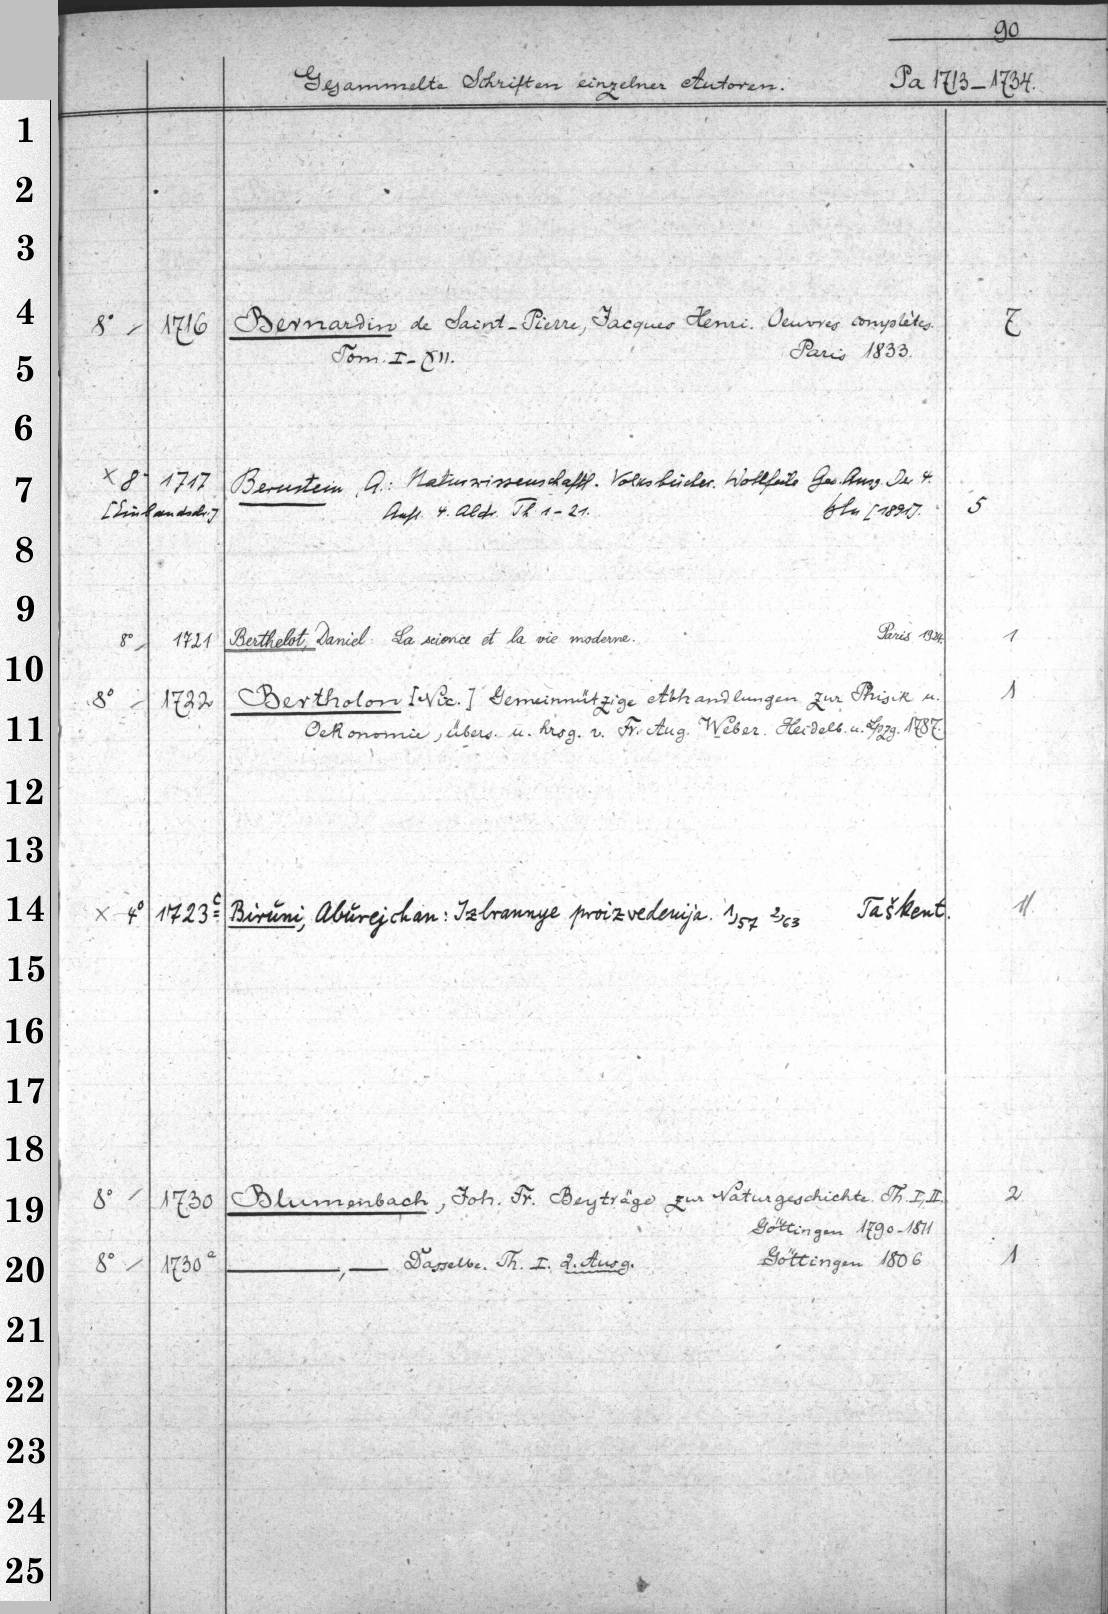 90
Gesammelte Schriften einzelner Autoren. Pa 1713-1734.
1
2
3
4
8° 1716 Bernardin de Saint-Pierre, Jacques Henri. Oeuvres complètes. 7
Tom. I-XII. Paris 1833.
5
6
7
x 8° 1717 Bernstein, A.: Naturwissenschaftl. Volksbücher. Wohlfeile Ges. Ausg. Der 4.
Aufl. 4. Abdr. Th 1-21. Bln [1891]. 5
8
9
8° 1721 Berthelot, Daniel: La science et la vie moderne. Paris 1924. 1
10
8° 1722 Bertholon [Nic.] Gemeinnützige Abhandlungen zur Phisik u. 1
11
Oekonomie, übers. u. hrsg. v. Fr. Aug. Weber. Heidelb. u. Lpzg. 1787.
12
13
14
x 4° 1723c Birŭni, Abŭrejchan: Izbrannye proizvedenija. 1,57 2,63 Taškent.
15
16
17
18
19
8° 1730 Blumenbach, Joh. Fr. Beyträge zur Naturgeschichte. Th. I, II. 2
Göttingen 1790-1811
20
8° 1730a —,— Dasselbe. Th. I. 2. Ausg. Göttingen 1806 1
21
22
23
24
25